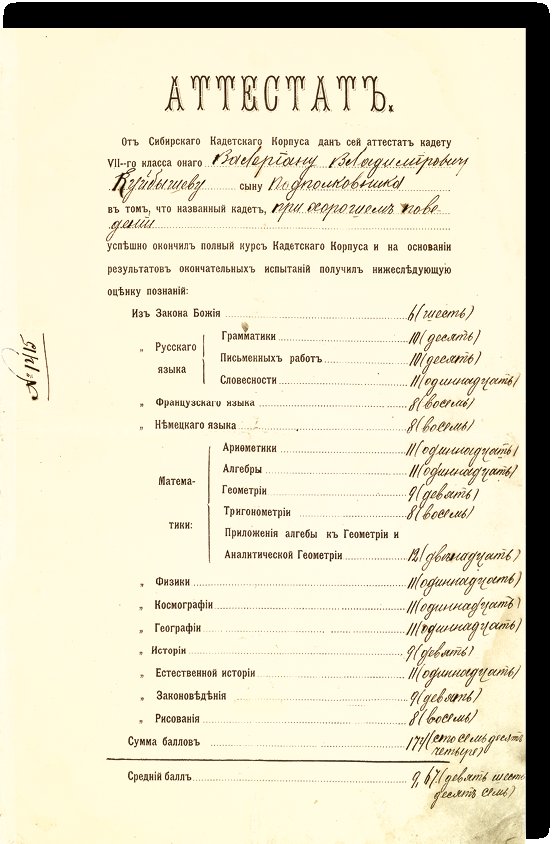 АТТЕСТАТЪ.
Отъ Сибирскаго Кадетскаго Корпуса данъ сей аттестатъ кадету
VII-го класса онаго Валерiану Владимiровичу
Куйбышеву сыну Подполковника
въ томъ, что названный кадетъ, при хорошемъ пове-
денiи
успѣшно окончилъ полный курсъ Кадетскаго Корпуса и на основанiи
результатовъ окончательныхъ испытанiй получилъ нижеслѣдующую
оцѣнку познанiй:
Изъ Закона Божiя 6 (шесть)
„ Русскаго языка
Грамматики 10 (десять)
Письменныхъ работъ 10 (десять)
Словесности 11 (одиннадцать)
„ Французскаго языка 8 (восемь)
„ Нѣмецкаго языка 8 (восемь)
Матема-
тики:
Ариѳметики 11 (одиннадцать)
Алгебры 11 (одиннадцать)
Геометрiи 9 (девять)
Тригонометрiи 8 (восемь)
Приложенiя алгебы къ Геометрiи и
Аналитической Геометрiи 12 (двѣнадцать)
„ Физики 11 (одиннадцать)
„ Космографiи 11 (одиннадцать)
„ Географiи 11 (одиннадцать)
„ Исторiи 9 (девять)
„ Естественной исторiи 11 (одиннадцать)
„ Законовѣдѣнiя 9 (девять)
„ Рисованiя 8 (восемь)
Сумма балловъ 174 (сто семьдесятъ
четыре)
Среднiй баллъ 9,67 (девять шесть
десятъ семь)